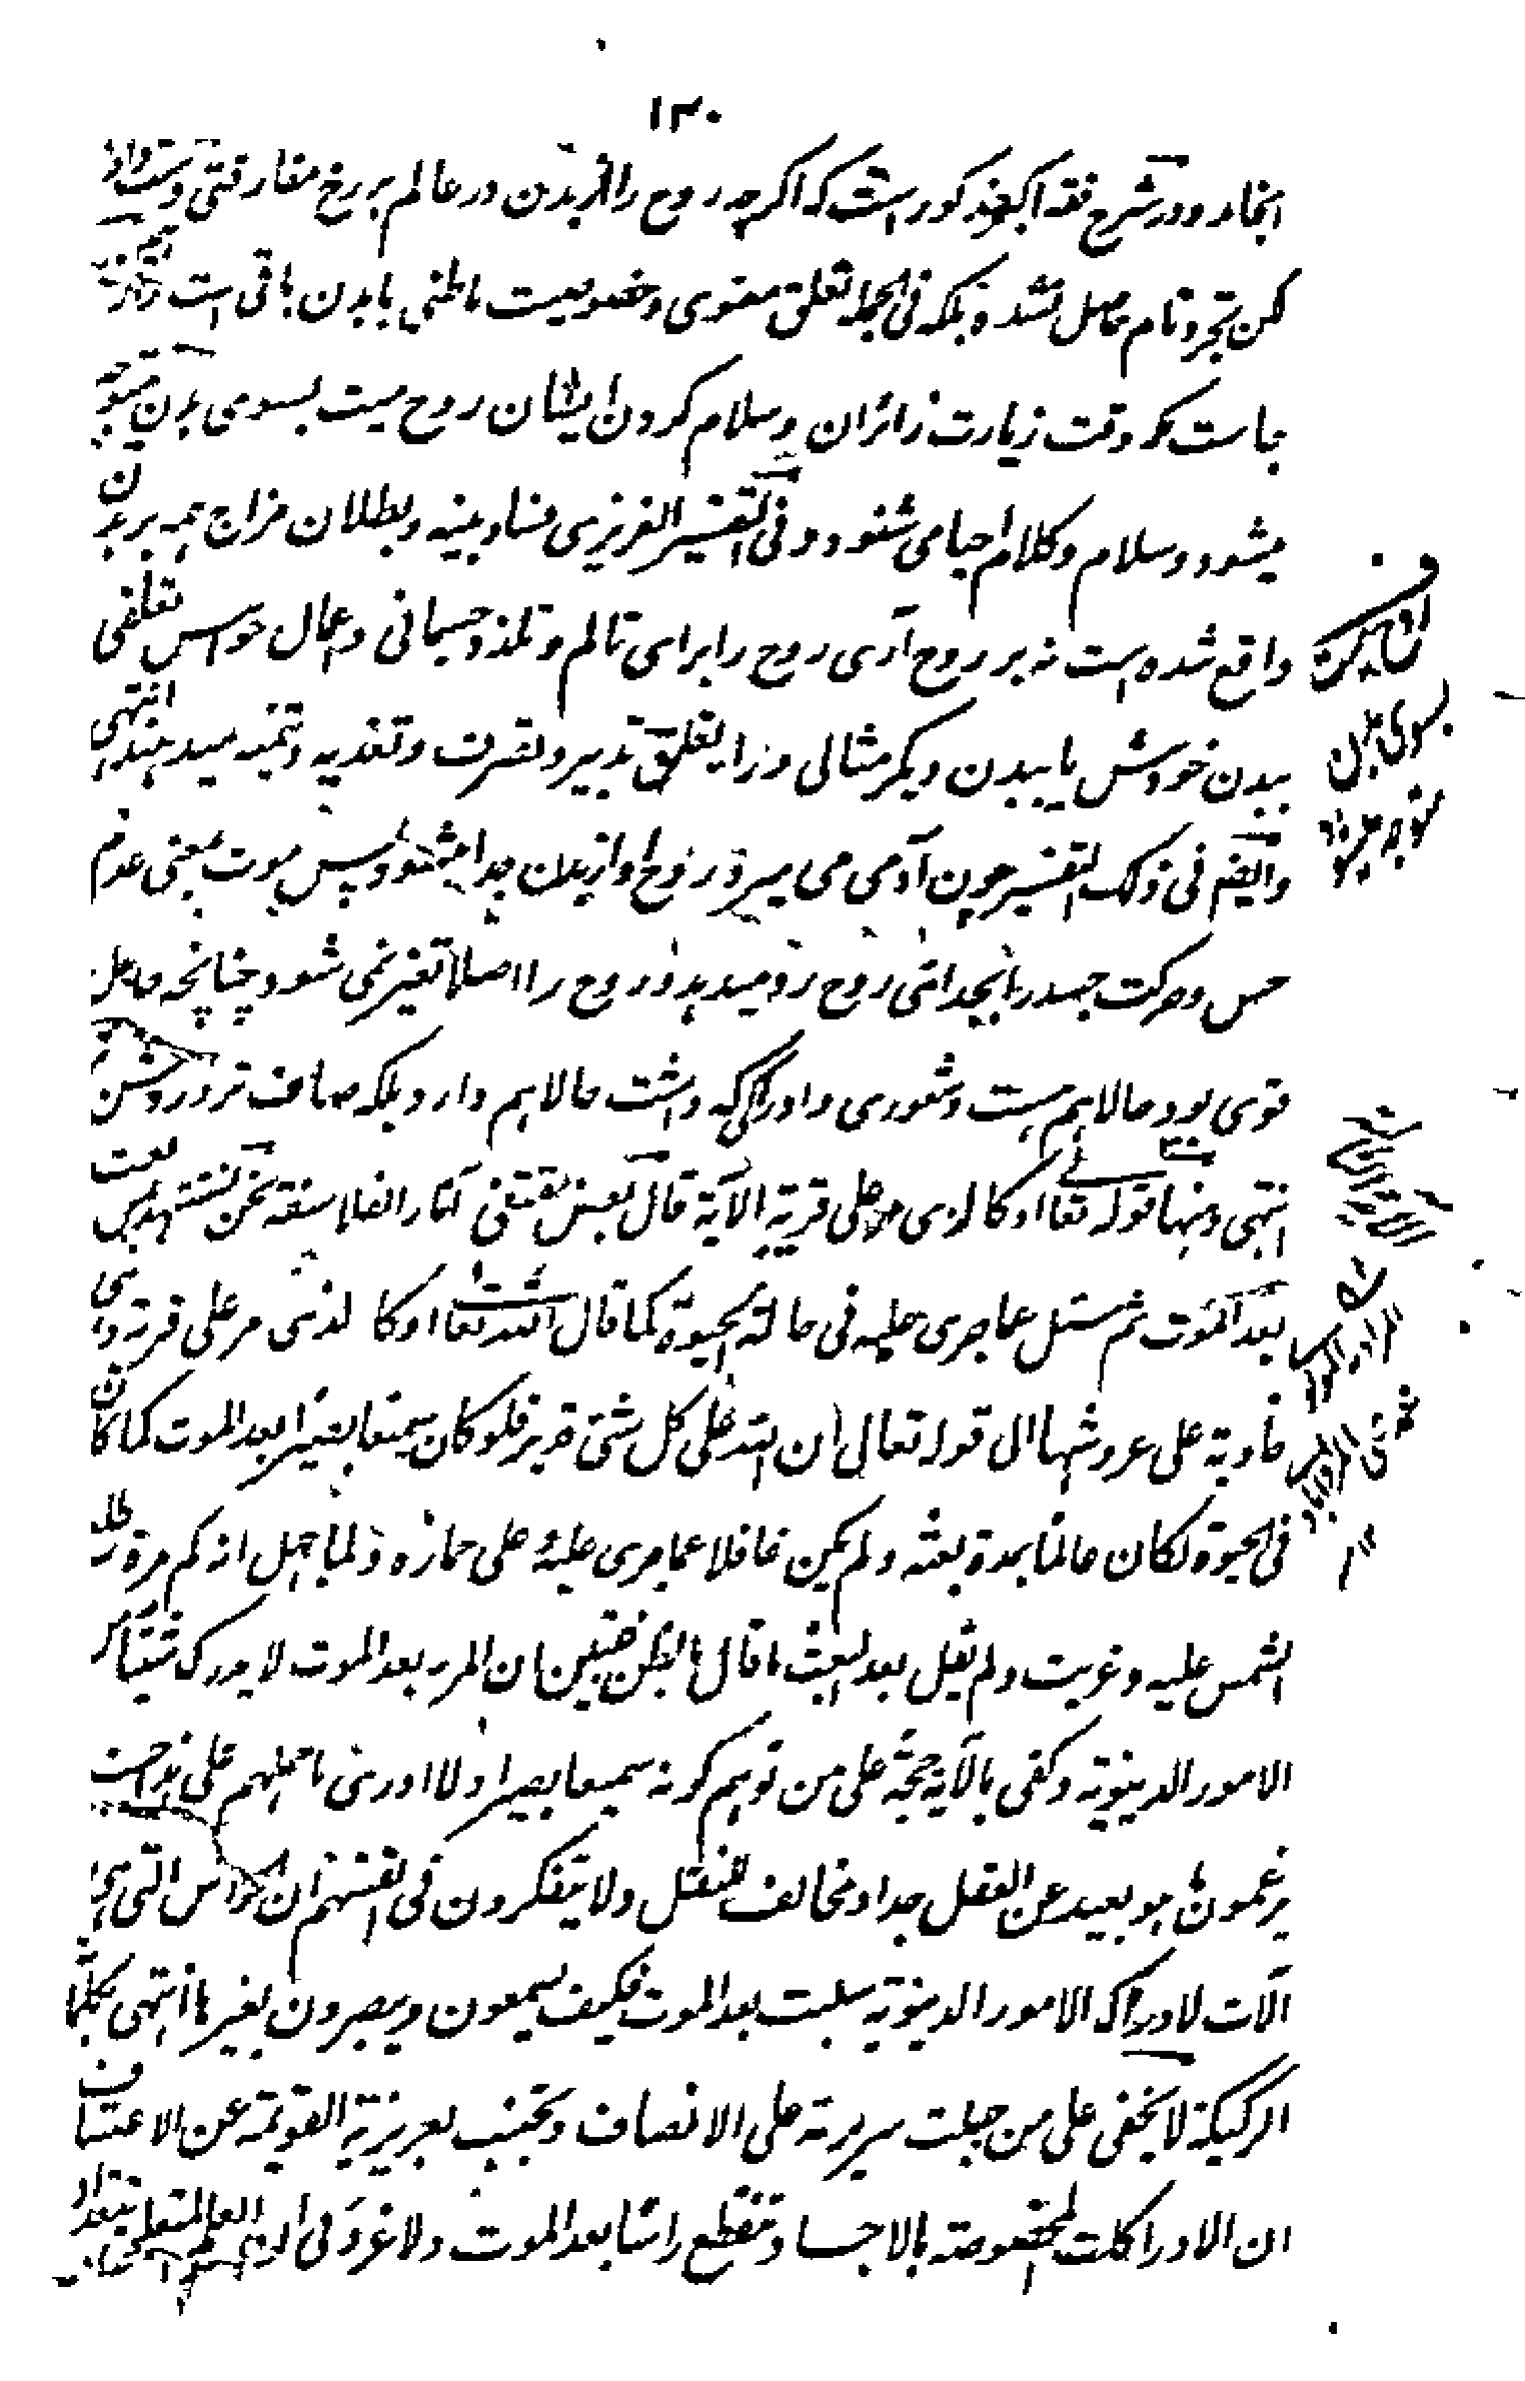 ۱۳۰
انجامد و در شرح فقه اکبر مذکور است که اگرچه روح را از بدن در عالم برزخ مفارقتی
لکن تجرد تام حاصل نشده بلکه فی الجمله تعلق معنوی و خصوصیت باطنی با بدن باقی است
جا ست که وقت زیارت زائران و سلام کردن ایشان روح میت بسوی بدن متوجه
میشود و سلام و کلام احیا می شنود و فی التفسیر العزیزی فساد بنیه و بطلان مزاج همه بر بدن
واقع شده است نه بر روح آری روح را برای تالم و تلذذ جسمانی و اعمال حواس تعلقی
ببدن خودش یا ببدن دیگر مثالی و را تعلق تدبیر و تصرف و تغذیه و تنمیه میدهند انتهی
وایضم فی ذلک التفسیر چون آدمی می میرد روح او از بدن جدا میشود و پس موت بمعنی عدم
حس و حرکت جسد را بجدائی روح رو میدهد و روح را اصلا تغیر نمی شود چنانچه حامل
قوی بود حالا هم هست و شعوری و ادراکی که داشت حالا هم دارد بلکه صاف تر و روشن
انتهی ومنها قوله تعا او کالذی مر علی قریة الآیة قال بعض مقتفی آثار الفلاسفة نحن نستشهد بمن بعث
بعد الموت ثم سئل عما جری علیه فی حالة الحیوة کما قال الله تعا او کالذی مر علی قریة وهی
خاویة علی عروشها الی قوله تعالی ان الله علی کل شئ قدیر فلو کان سمیعا بصیرا بعد الموت کما کان
فی الحیوة لکان عالما بمدة بعثه ولم یکن غافلا عما جری علیه علی حماره ولما جهل انه کم مرة طلع
الشمس علیه وغربت ولم یقل بعد البعث ما قال بالظن فتبین ان المرء بعد الموت لا یدرک شیئا من
الامور الدنیویة وکفی بالآیة حجة علی من توهم کونه سمیعا بصیرا ولا ادری ما حملهم علی هذا حیث
یزعمون ما هو بعید عن العقل جدا و مخالف للنقل ولا یتفکرون فی انفسهم ان الحواس التی هی
آلات لادراک الامور الدنیویة سلبت بعد الموت فکیف یسمعون ویبصرون بغیرها انتهی بکلماته
الرکیکة لا یخفی علی من جبلت سریرته علی الانصاف وتجنب بعریزیة القویمة عن الاعتساف
ان الادراکات المخصوصة بالاجساد تنقطع راسا بعد الموت ولا غرو فی
بسوی بدن